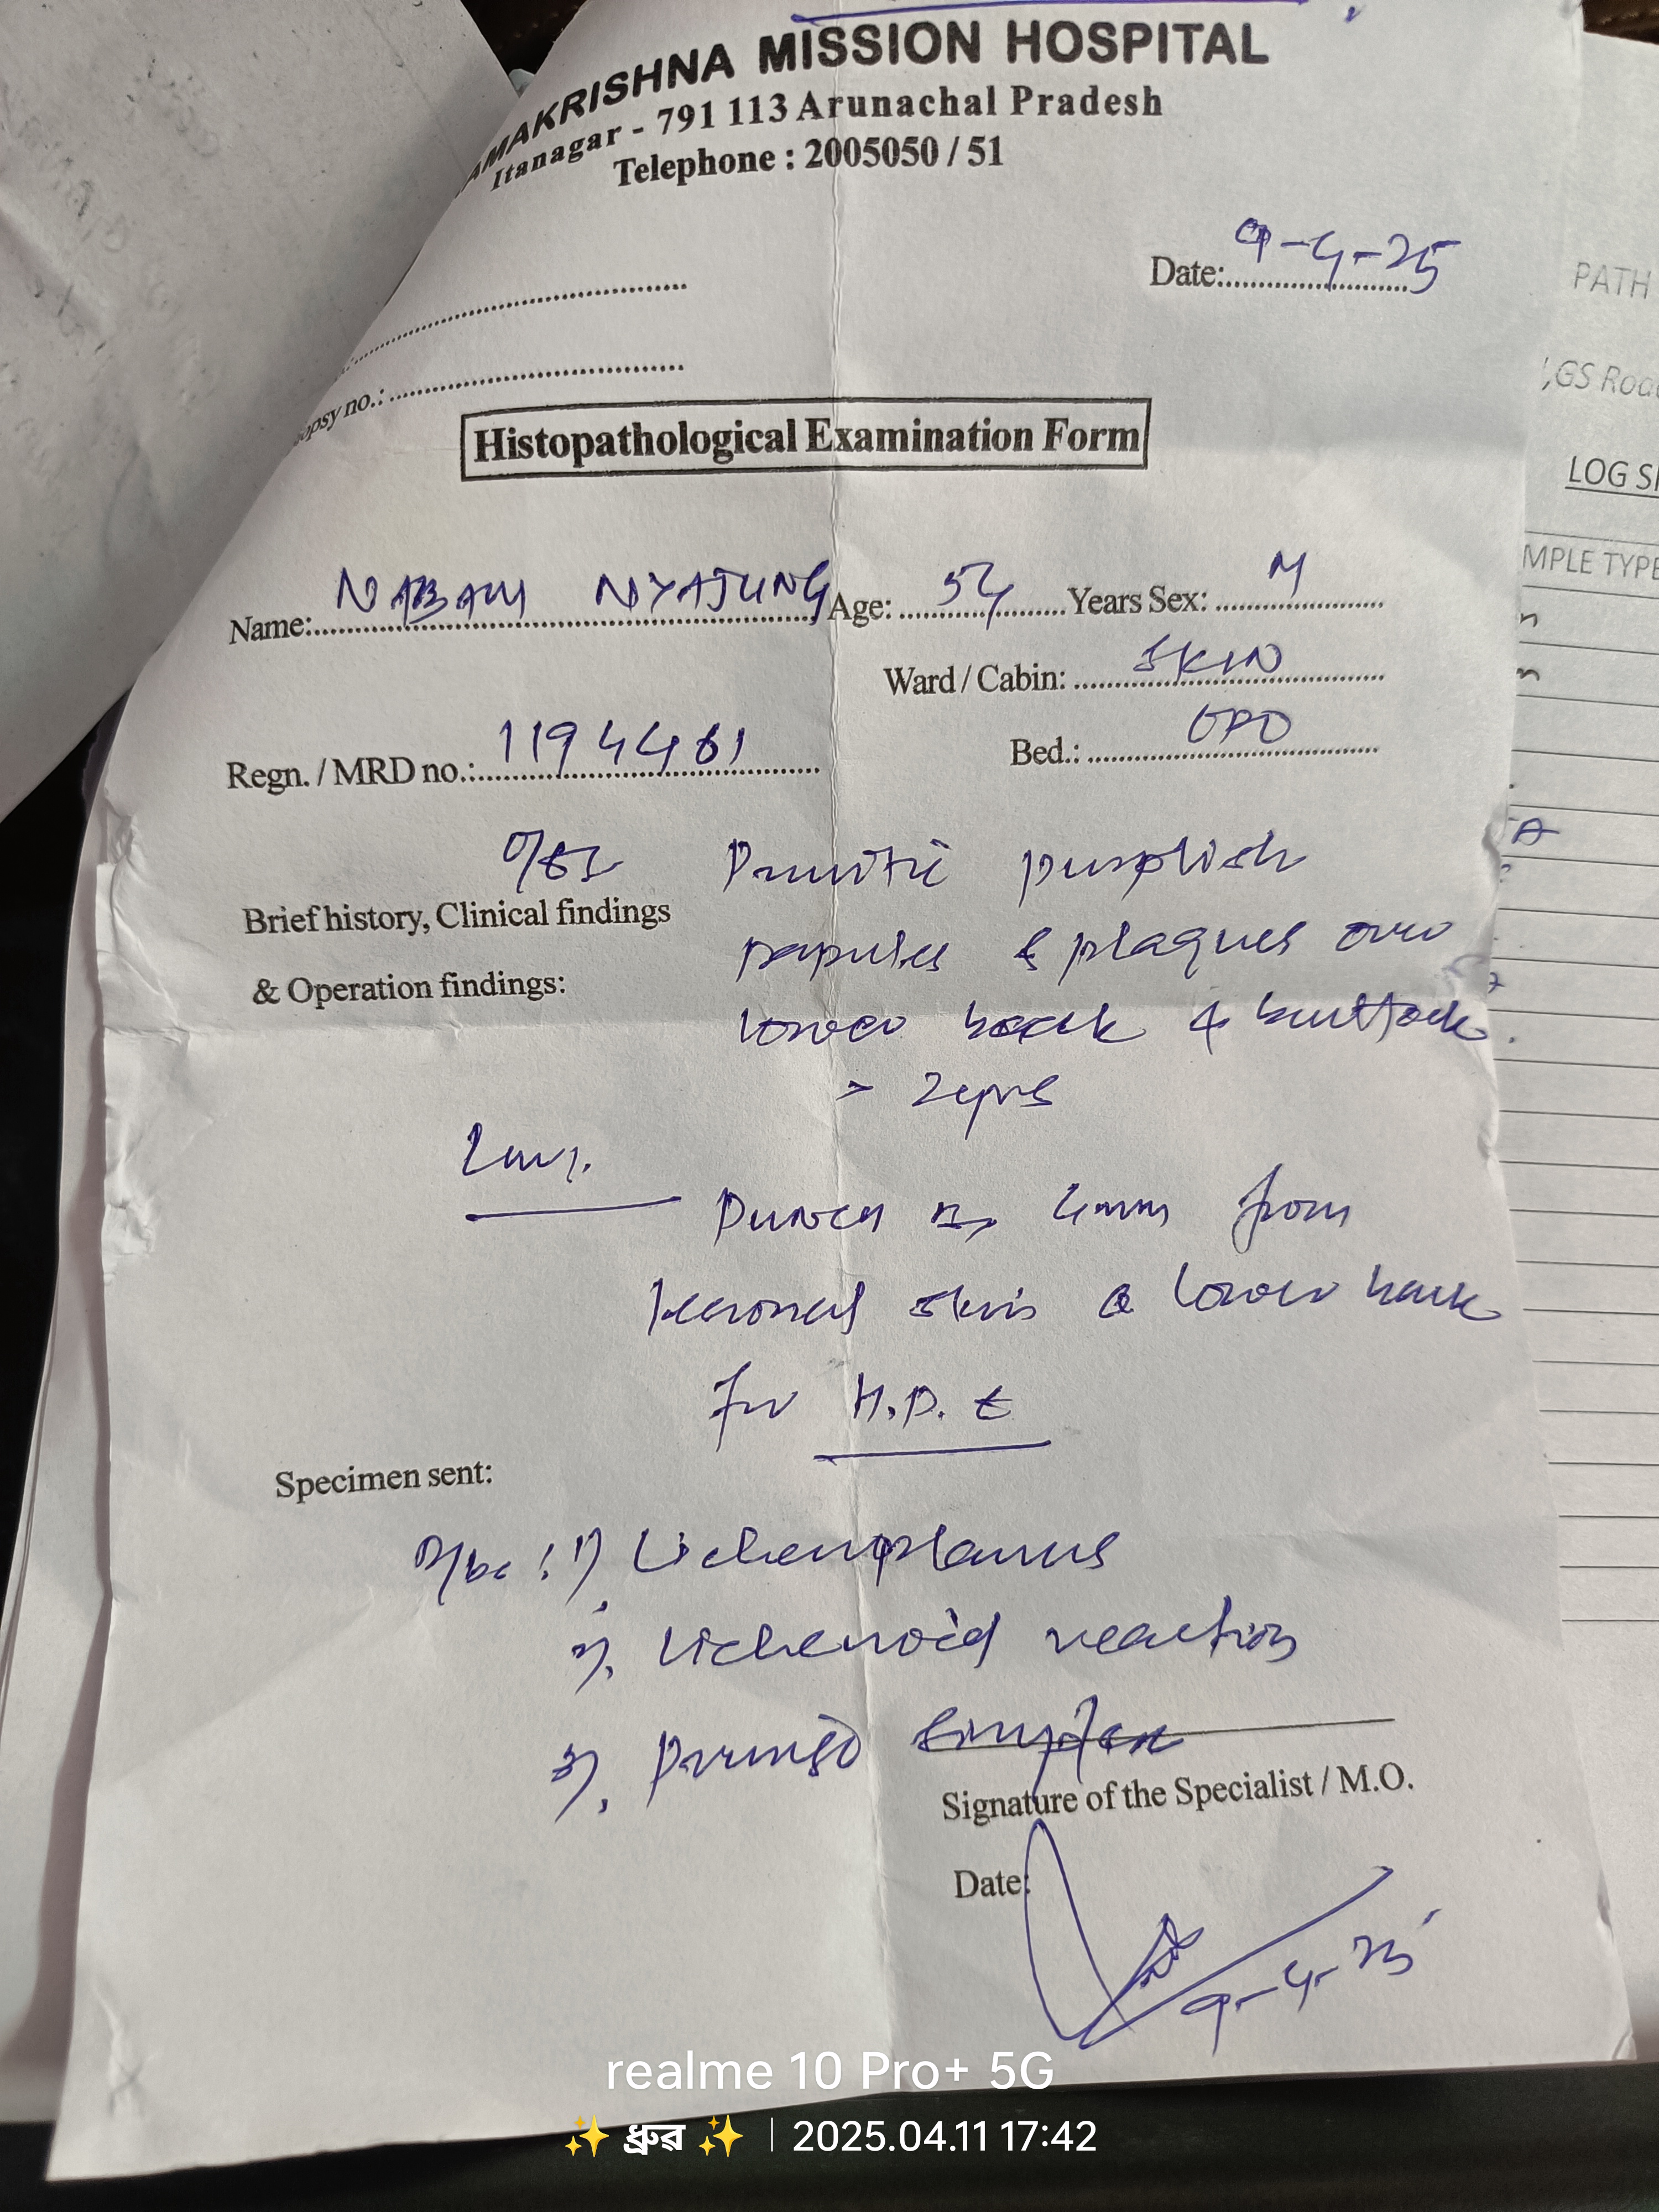 AMAKRISHNA MISSION HOSPITAL
Itanagar - 791 113 Arunachal Pradesh
Telephone : 2005050 / 51
Date: 9-4-25
opsy no.:
Histopathological Examination Form
Name: NABAM NYAJUNG Age: 54 Years Sex: M
Ward / Cabin: SKIN
Regn. / MRD no.: 1194461 Bed.: OPD
Pruritic purplish
Brief history, Clinical findings
papules & plaques over
& Operation findings:
lower back & buttock.
> 2 yrs
Inv.
Punch Bx 4mm from
lesional skin @ lower back
for H.P.E
Specimen sent:
1) Lichen planus
2). Lichenoid reaction
3). Prurigo simplex
Signature of the Specialist / M.O.
Date:
9-4-25
realme 10 Pro+ 5G
✨ ধ্ৰুৱ ✨ | 2025.04.11 17:42
PATH
GS Road
LOG S
MPLE TYPE